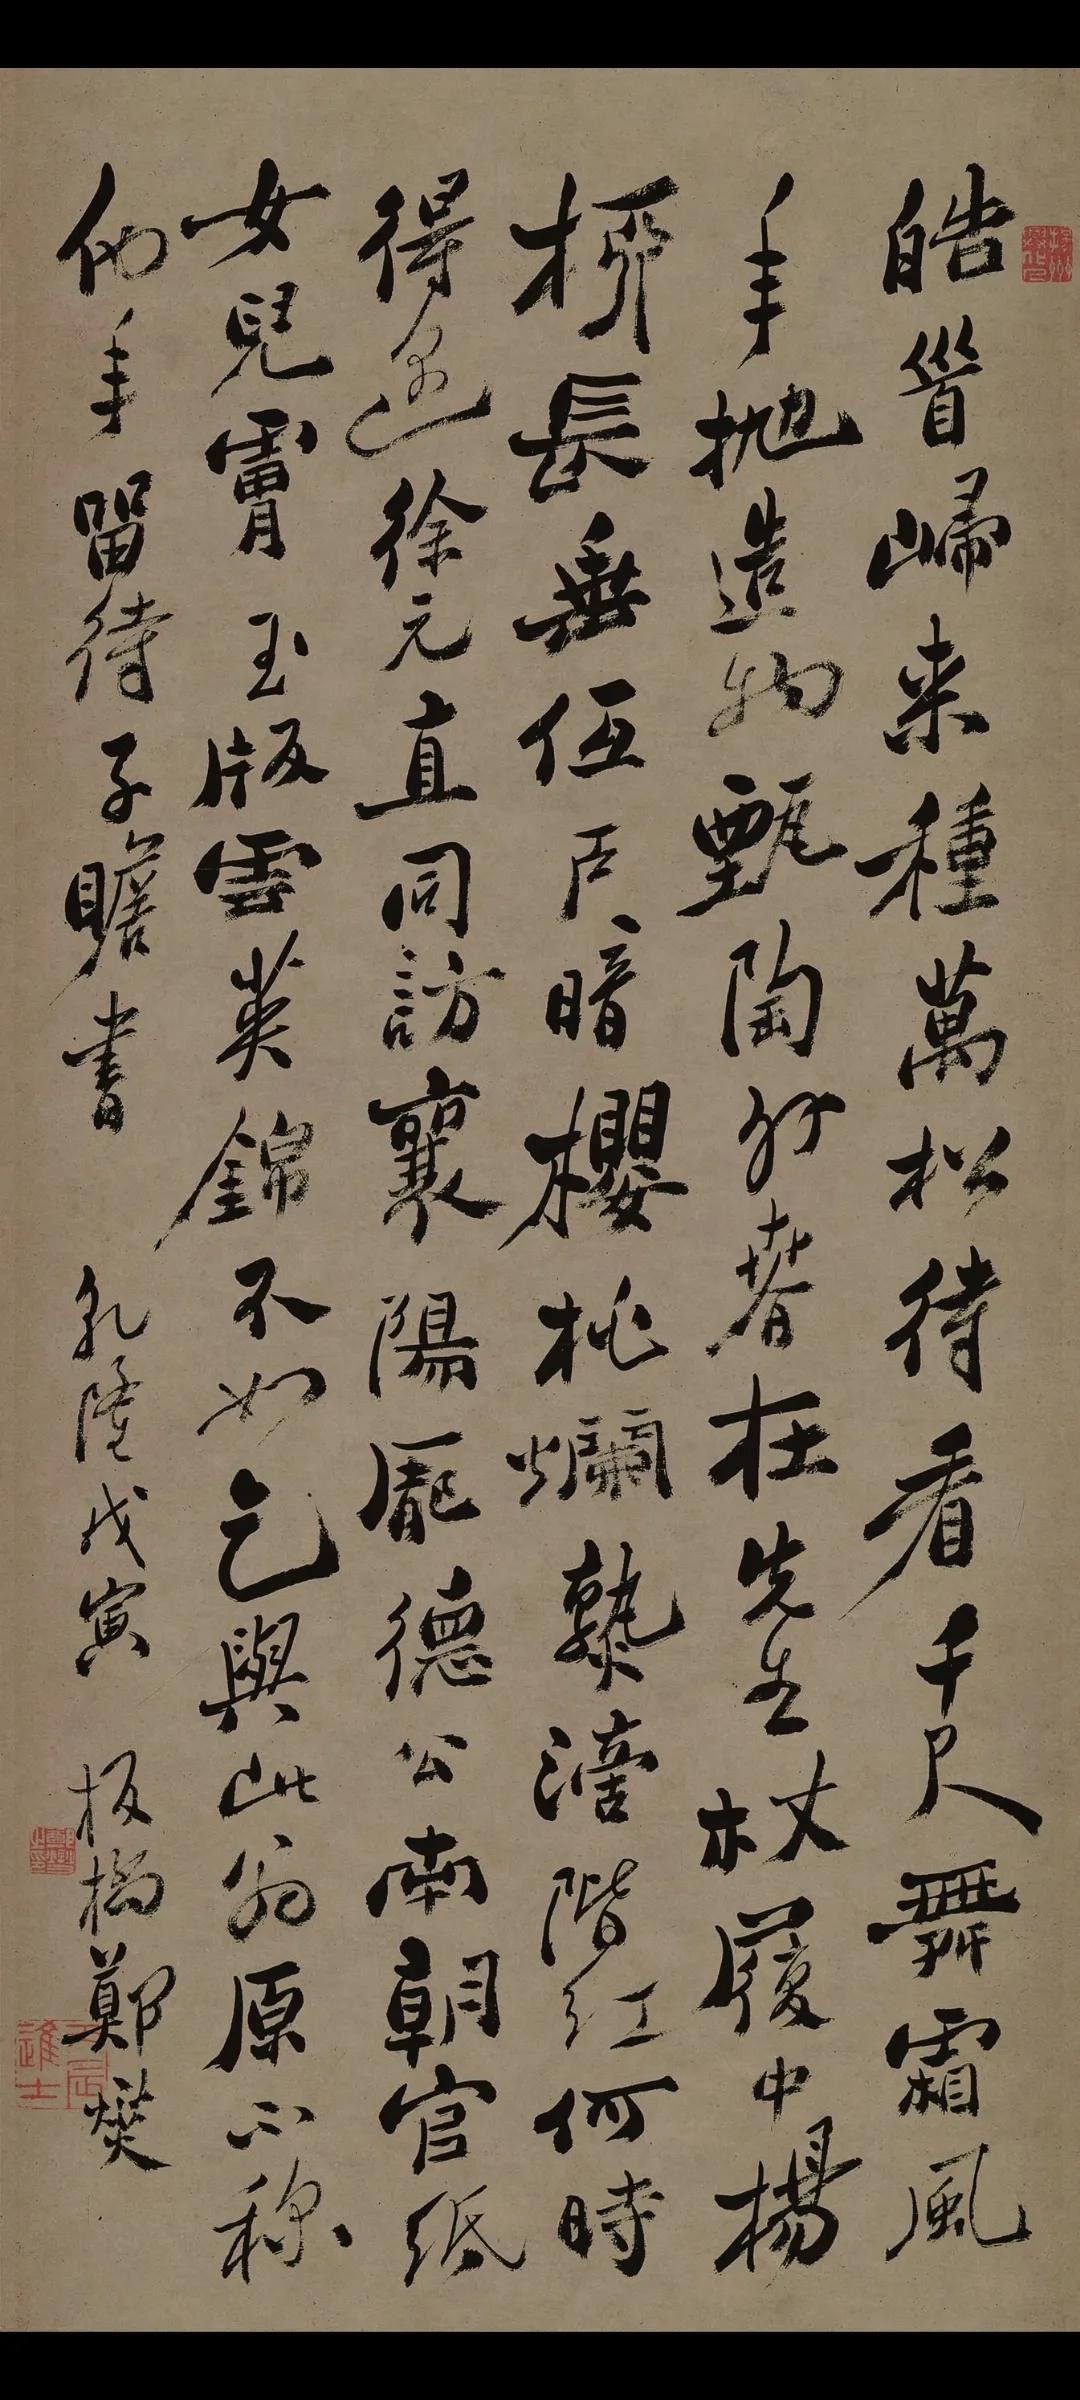 皓首歸来種萬松待看千尺舞霜風
年拋造物甄陶外春在先生杖履中楊
柳長垂低戶暗櫻桃爛熟滴階紅何時
得徐元直同訪襄陽龐德公南朝官紙
女兒膚玉版雲英錦不如乞與此翁原不称
他年留待子瞻書 乾隆戊寅 板橋鄭燮
鄭燮之印
丙辰進士